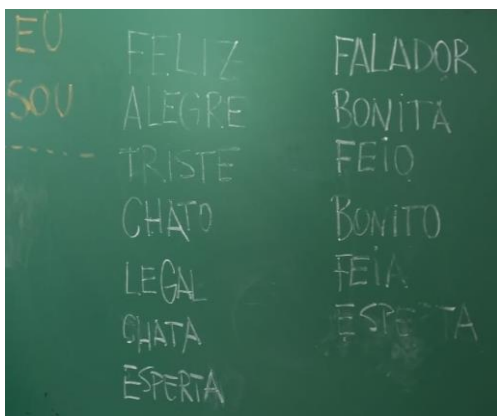 EU
SOU
-----
FELIZ
ALEGRE
TRISTE
CHATO
LEGAL
CHATA
ESPERTA
FALADOR
BONITA
FEIO
BONITO
FEIA
ESPERTA